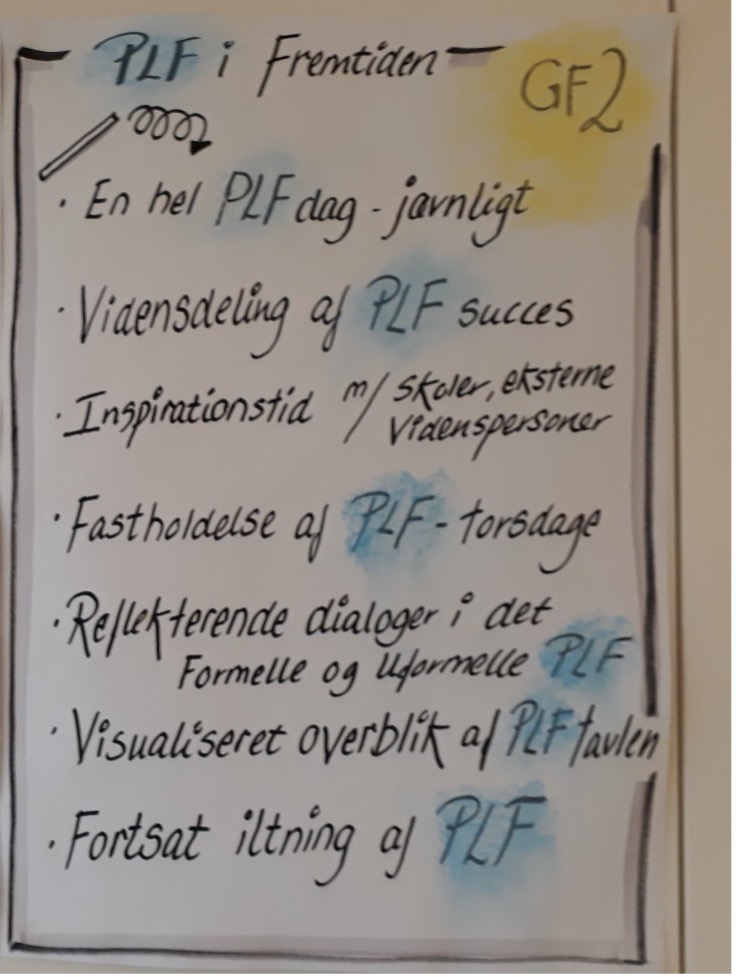 PLF i Fremtiden
GF2
· En hel PLF dag - jævnligt
· Vidensdeling af PLF succes
· Inspirationstid m/ Skoler, eksterne
Videnspersoner
· Fastholdelse af PLF - torsdage
· Reflekterende dialoger i det
Formelle og Uformelle PLF
· Visualiseret overblik af PLF tavlen
· Fortsat iltning af PLF